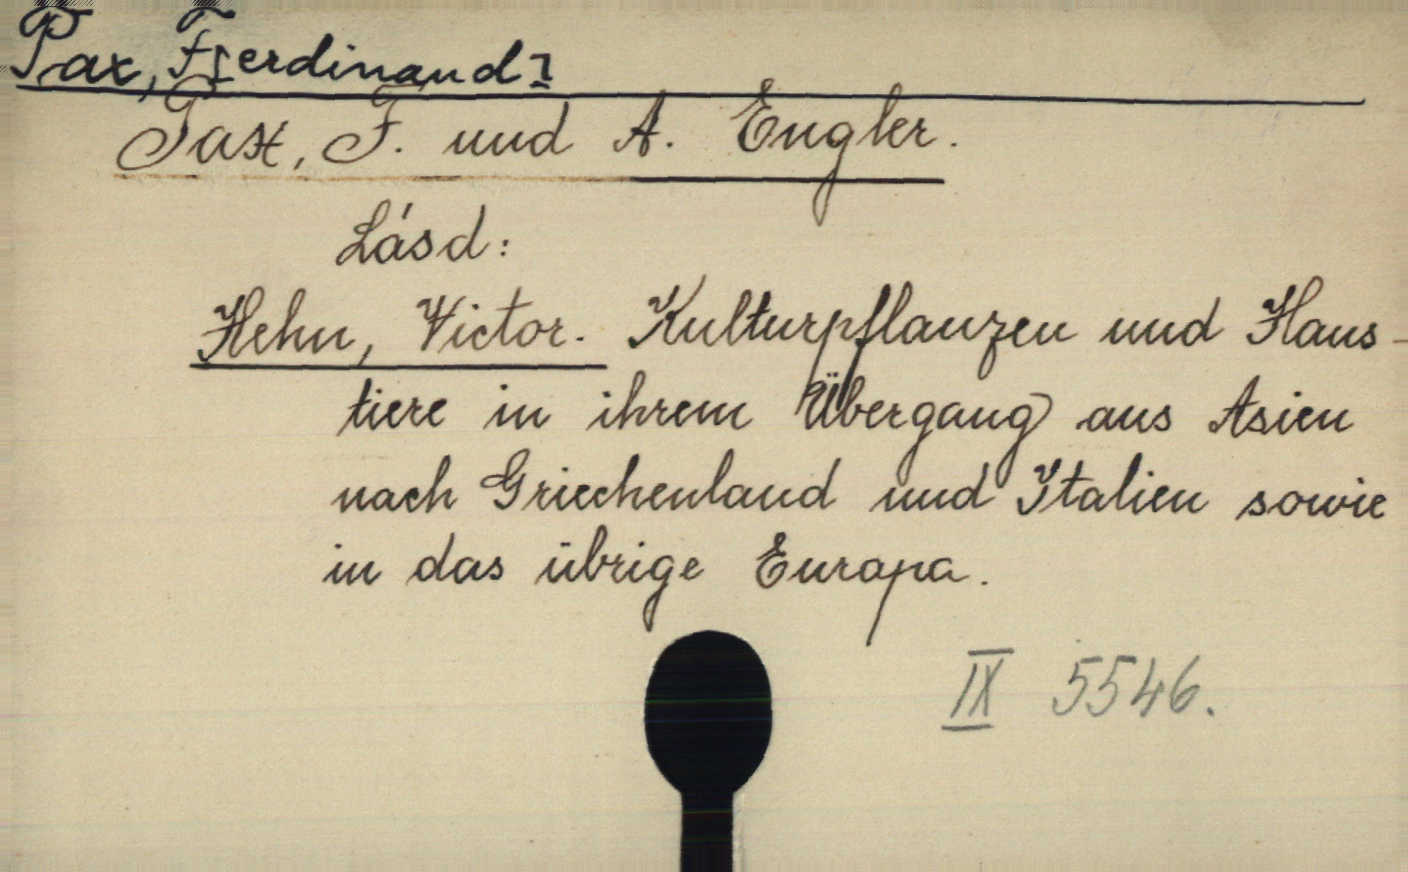 Pax, F[erdinand]
Pax, F. und A. Engler.
Lásd:
Hehn, Victor. Kulturpflanzen und Haus-
tiere in ihrem Übergang aus Asien
nach Griechenland und Italien sowie
in das übrige Europa.
IX 5546.